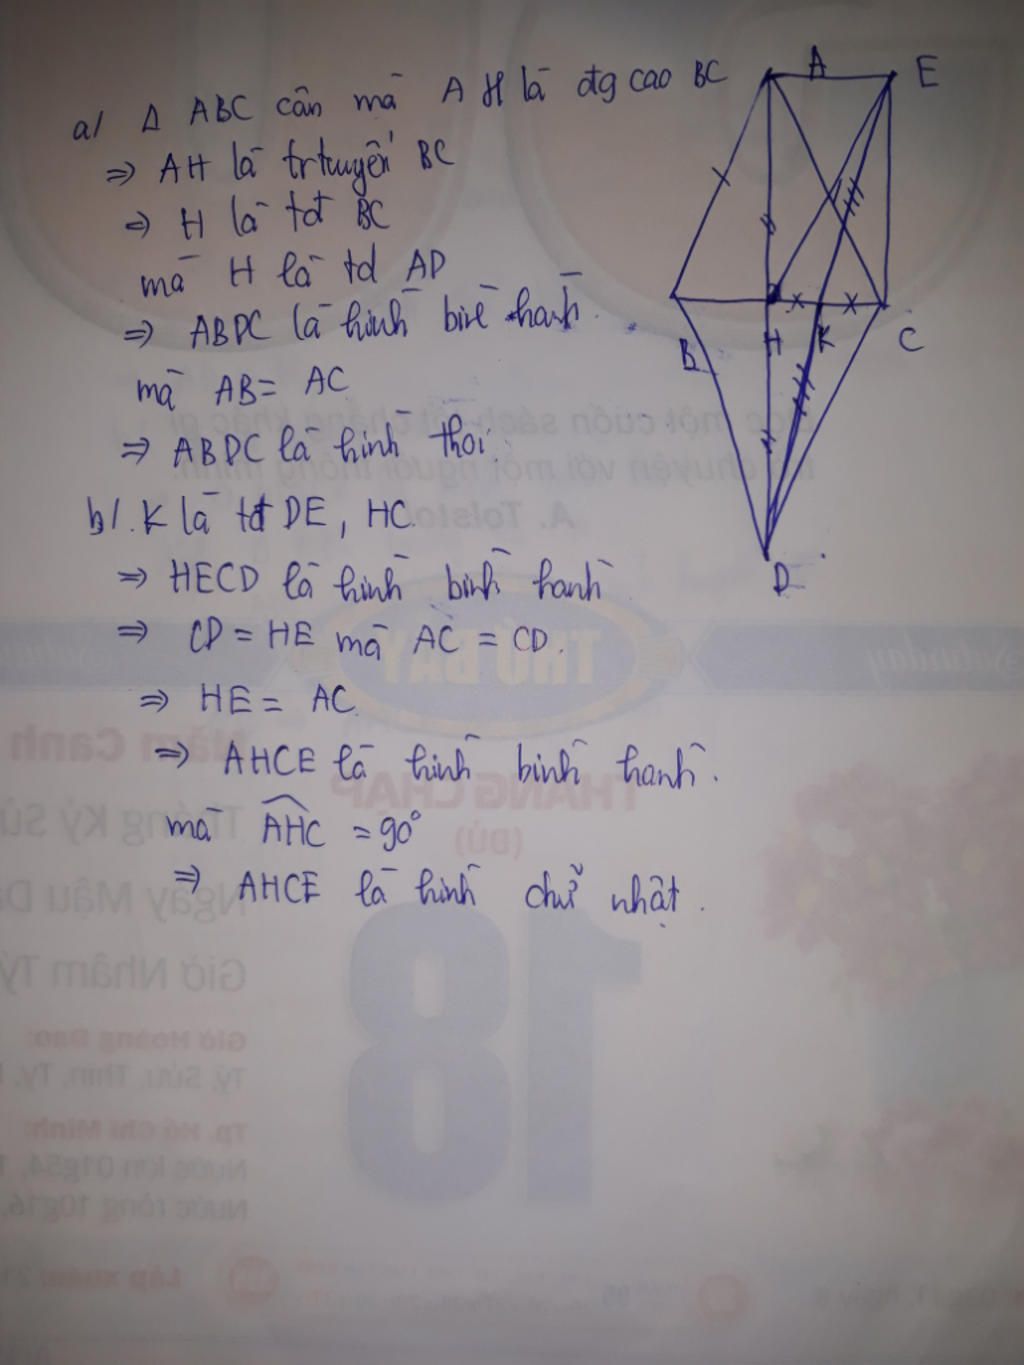 a/ Δ ABC cân mà AH là đg cao BC
⇒ AH là trtuyến BC
⇒ H là tđ BC
mà H là td AD
⇒ ABDC là hình bìn hành.
mà AB = AC
⇒ ABDC là hình thoi.
b/. K là tđ DE, HC.
⇒ HECD là hình bình hành
⇒ CD = HE mà AC = CD.
⇒ HE = AC.
⇒ AHCE là hình bình hành.
mà AHC = 90°
⇒ AHCE là hình chữ nhật.
A E
B H K C
D
đọc một cuốn sách tốt chẳng khác gì
nói chuyện với một người thông minh.
A. Tolstoi
THỨ BẢY
Saturday
Năm Canh
THÁNG CHẠP
(ĐỦ)
Tháng Kỷ Sửu
Ngày Mậu
Giờ Nhâm Tý
18
Giờ Hoàng Đạo:
Tý, Sửu, Thìn, Tỵ,
Tp. Hồ Chí Minh:
Nước lớn 01g54,
Nước ròng 10g16,
Lập xuân: